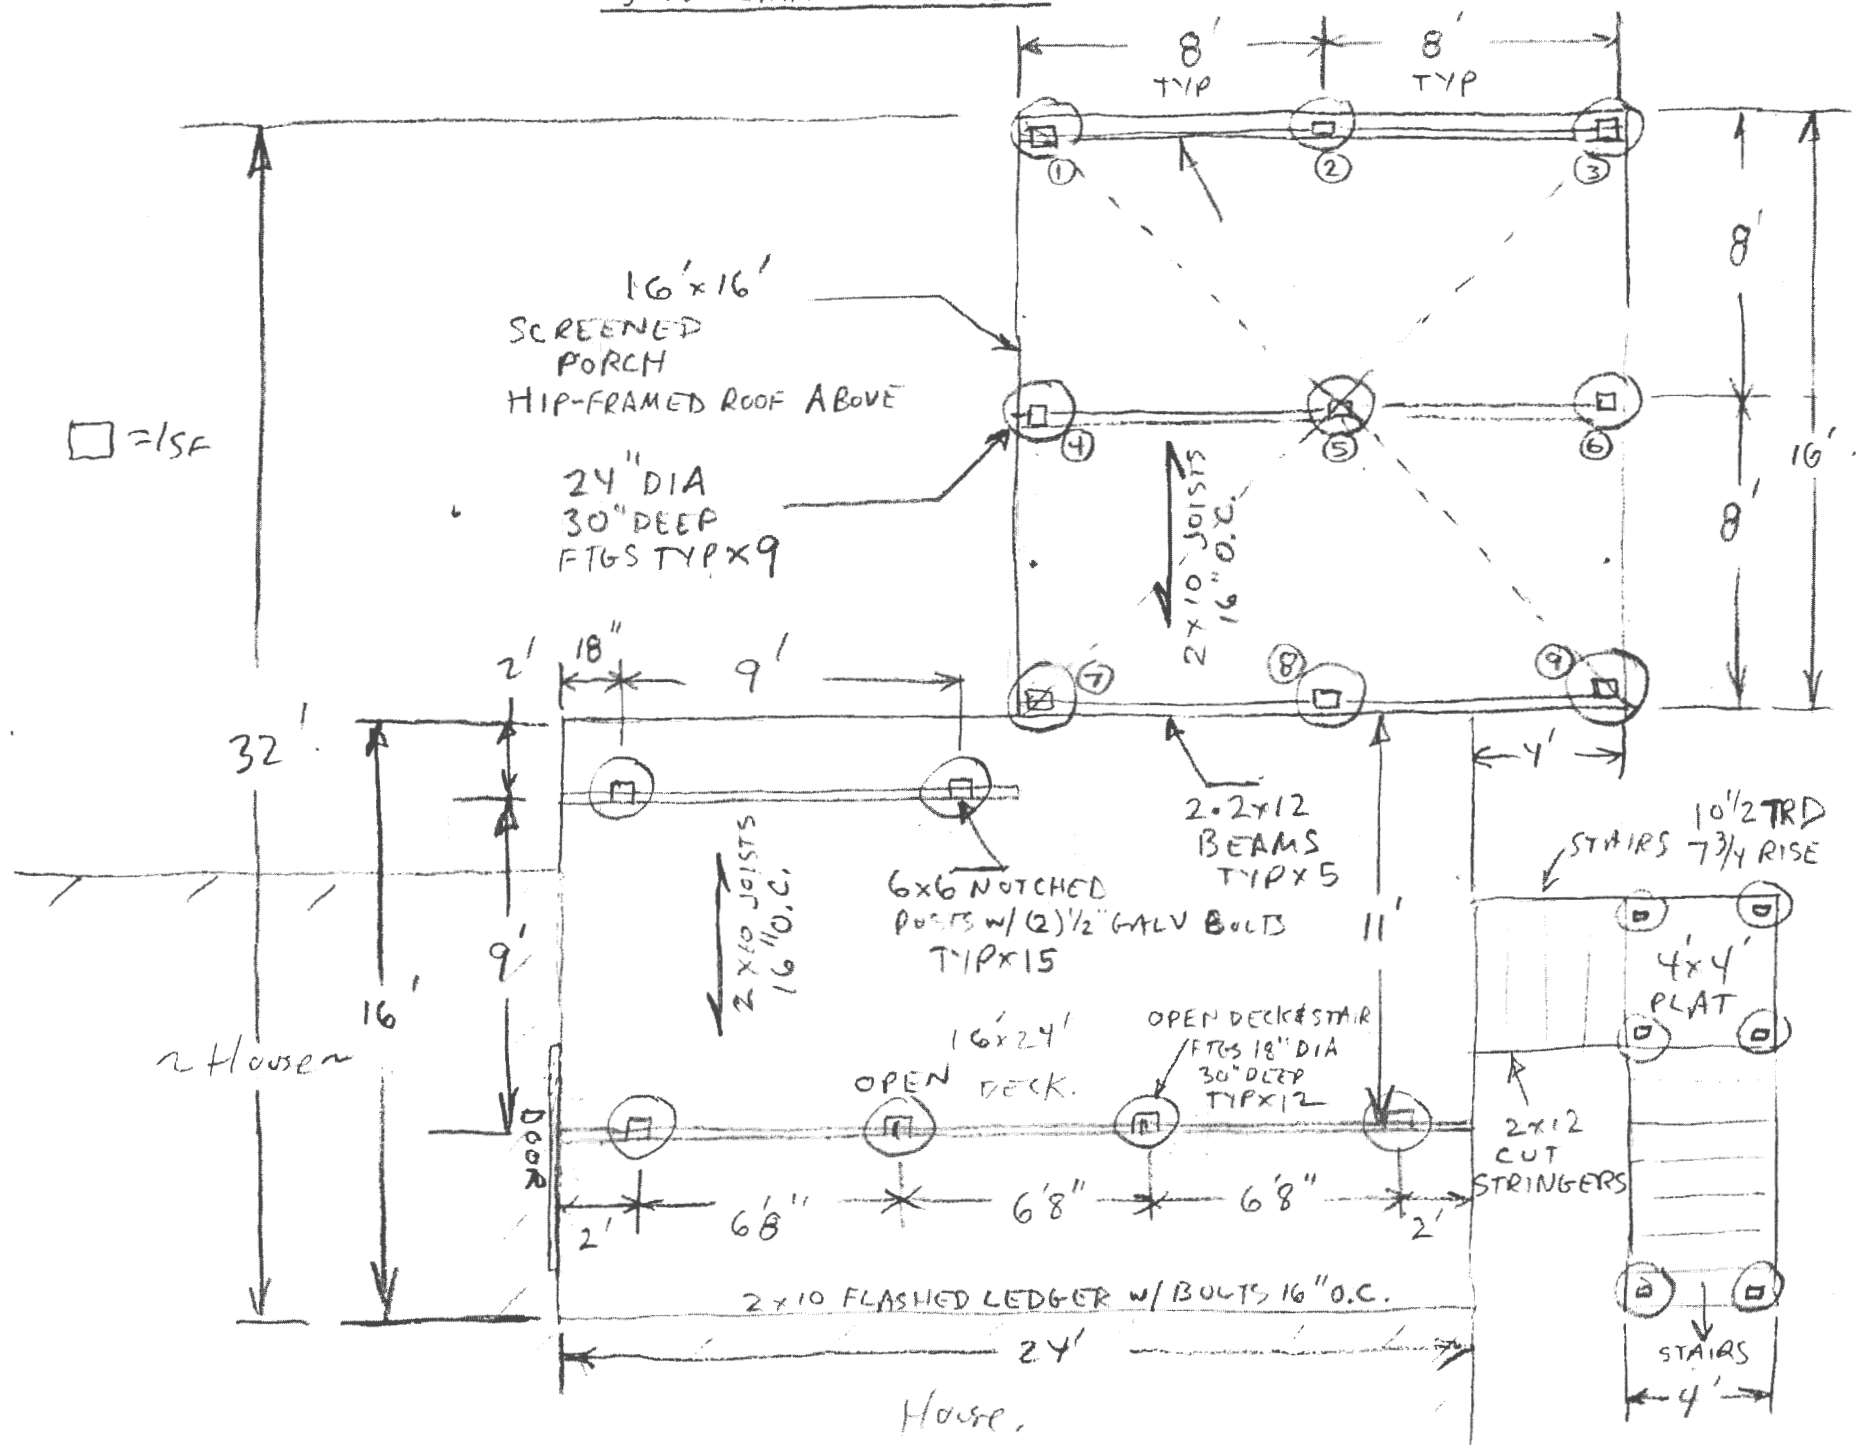 8' 8'
TYP TYP
① ② ③
8'
16'x16'
SCREENED
PORCH
HIP-FRAMED ROOF ABOVE
□ =1SF
④ ⑤ ⑥
16'
24" DIA
30" DEEP
FTGS TYP x 9
2x10 JOISTS
16" O.C.
8'
18"
9'
2'
⑦ ⑧ ⑨
32'
4'
2-2x12
BEAMS
TYP x 5
10 1/2 TRD
STAIRS 7 3/4 RISE
6x6 NOTCHED
POSTS w/ (2) 1/2" GALV BOLTS
TYP x 15
2x10 JOISTS
16" O.C.
9'
11'
16'
4'x4'
PLAT
~ House ~
16'x24'
OPEN DECK.
OPEN DECK & STAIR
FTGS 18" DIA
30" DEEP
TYP x 12
DOOR
2x12
CUT
STRINGERS
2' 6'8" 6'8" 6'8" 2'
2x10 FLASHED LEDGER w/ BOLTS 16" O.C.
24'
STAIRS
4'
House.